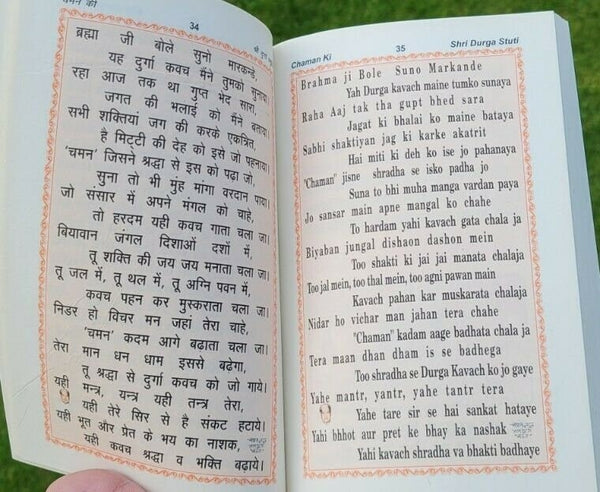 चमन की
34
श्री दुर्गा
ब्रह्मा जी बोले सुनो मारकन्डे,
यह दुर्गा कवच मैंने तुमको सुनाया।
रहा आज तक था गुप्त भेद सारा,
जगत की भलाई को मैंने बताया।
सभी शक्तियां जग की करके एकत्रित,
है मिट्टी की देह को इसे जो पहनाया।
'चमन' जिसने श्रद्धा से इस को पढ़ा जो,
सुना तो भी मुंह मांगा वरदान पाया।
जो संसार में अपने मंगल को चाहे,
तो हरदम यही कवच गाता चला जा।
बियावान जंगल दिशाओं दशों में,
तू शक्ति की जय जय मनाता चला जा।
तू जल में, तू थल में, तू अग्नि पवन में,
कवच पहन कर मुस्कराता चला जा।
निडर हो विचर मन जहां तेरा चाहे,
'चमन' कदम आगे बढ़ाता चला जा।
तेरा मान धन धाम इससे बढ़ेगा,
तू श्रद्धा से दुर्गा कवच को जो गाये।
यही मन्त्र, यन्त्र यही तन्त्र तेरा,
यही तेरे सिर से है संकट हटाये।
यही भूत और प्रेत के भय का नाशक,
यही कवच श्रद्धा व भक्ति बढ़ाये।
Chaman Ki
35
Shri Durga Stuti
Brahma ji Bole Suno Markande
Yah Durga kavach maine tumko sunaya
Raha Aaj tak tha gupt bhed sara
Jagat ki bhalai ko maine bataya
Sabhi shaktiyan jag ki karke akatrit
Hai miti ki deh ko ise jo pahanaya
"Chaman" jisne shradha se isko padha jo
Suna to bhi muha manga vardan paya
Jo sansar main apne mangal ko chahe
To hardam yahi kavach gata chala ja
Biyaban jungal dishaon dashon mein
Too shakti ki jai jai manata chalaja
Too jal mein, too thal mein, too agni pawan main
Kavach pahan kar muskarata chalaja
Nidar ho vichar man jahan tera chahe
"Chaman" kadam aage badhata chala ja
Tera maan dhan dham is se badhega
Too shradha se Durga Kavach ko jo gaye
Yahe mantr, yantr, yahe tantr tera
Yahe tare sir se hai sankat hataye
Yahi bhhot aur pret ke bhay ka nashak
Yahi kavach shradha va bhakti badhaye